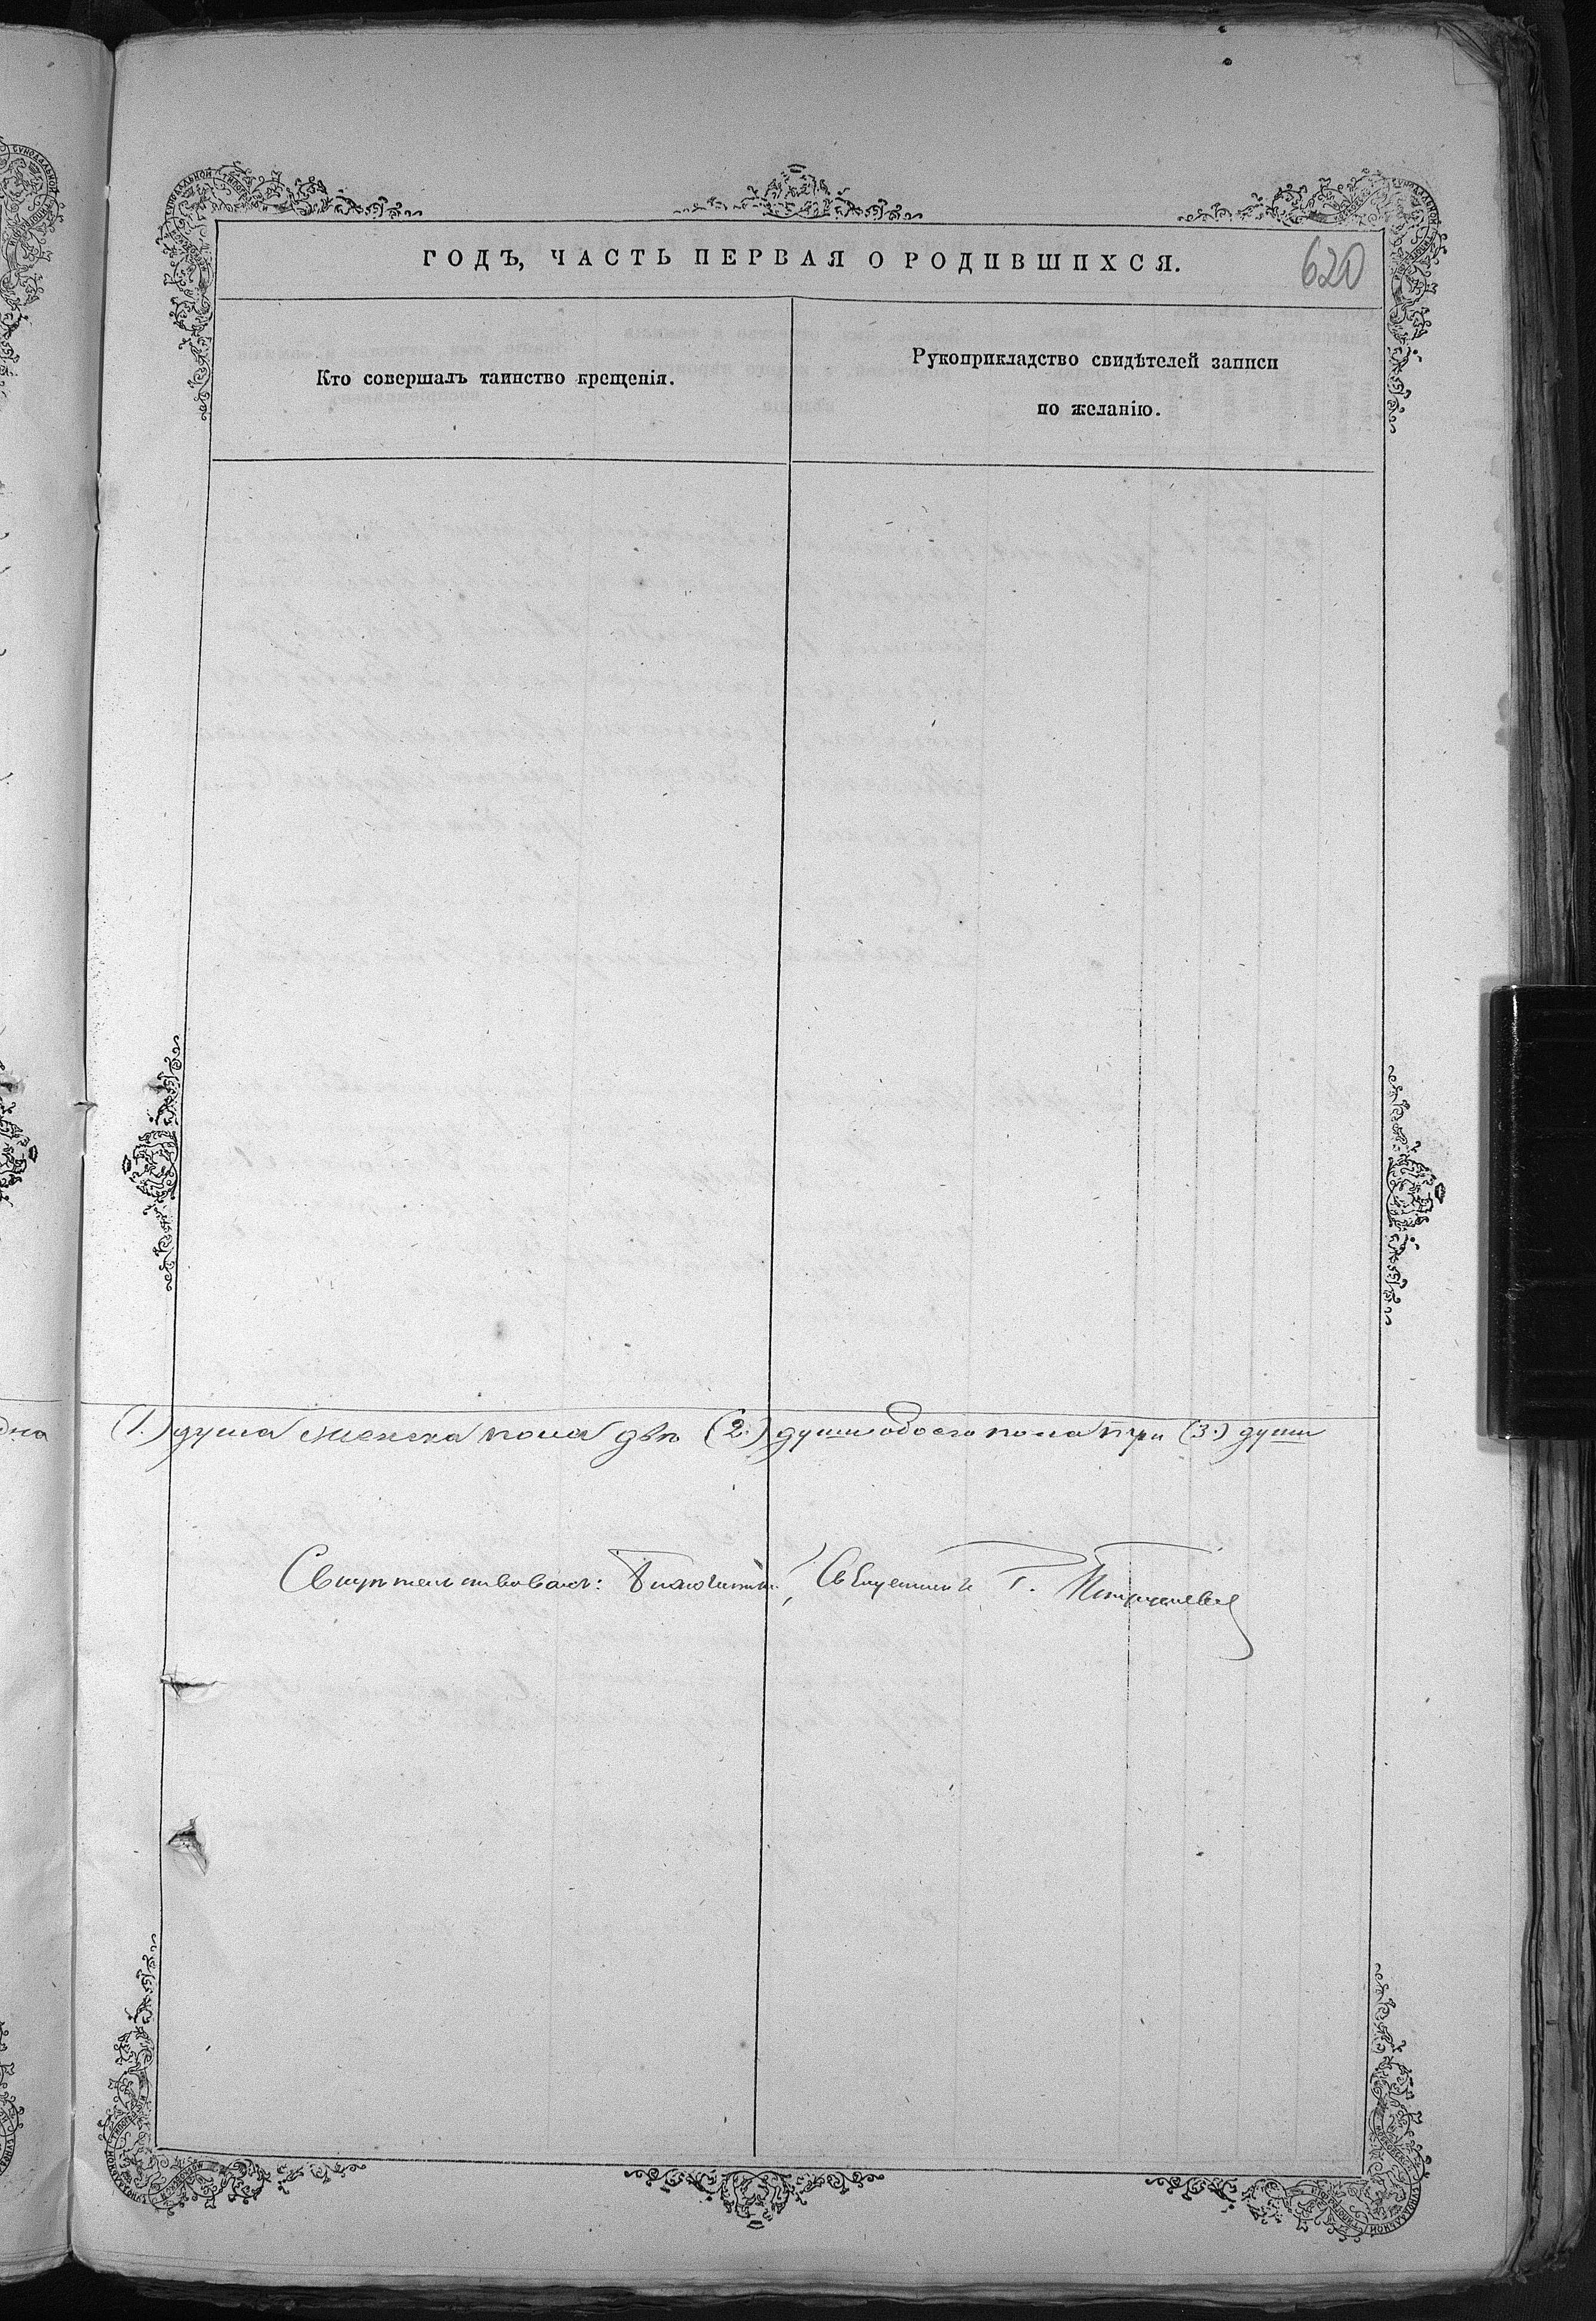 ГОДЪ, ЧАСТЬ ПЕРВАЯ О РОДИВШИХСЯ.
620
Кто совершалъ таинство крещенія.
Рукоприкладство свидѣтелей записи
по желанію.
(1.) душа женска пола двѣ (2.) души обоего пола три (3.) души
Свидѣтельствовалъ: Благочинный, Священникъ Г.